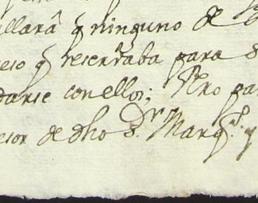 llarã q ninguno de
eso q reseruaba para
darse con ellos; Pero pa
esor de dho S.r Marq.s y